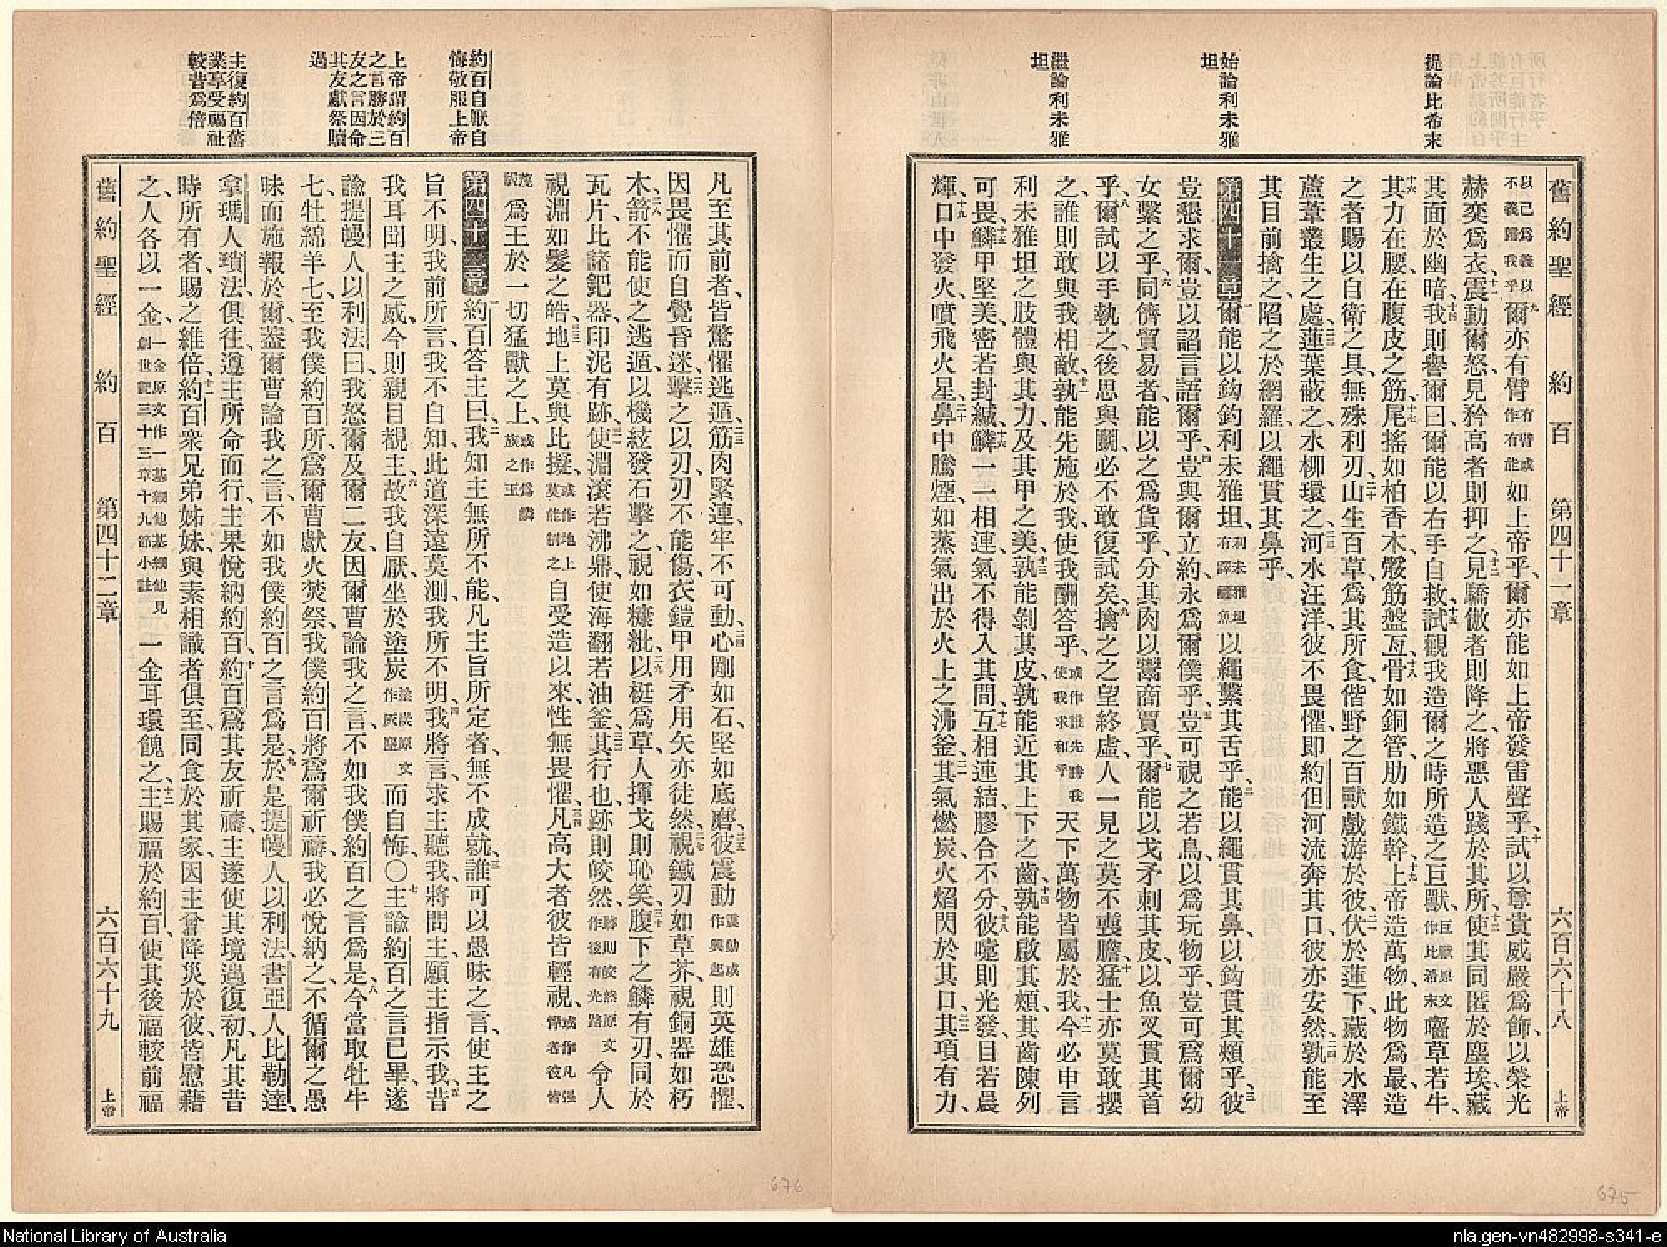 提論比希末
始論利未雅坦
繼論利未雅坦
舊約聖經 約百 第四十一章 六百六十八 上帝
以己為義以不義歸我乎爾亦有臂有臂或作有能如上帝乎、爾亦能如上帝發雷聲乎、試以尊貴威嚴為飾、以榮光
赫奕為衣、震動爾怒、見矜高者則抑之、見驕傲者則降之、將惡人踐於其所、使其同匿於塵埃、藏
其面於幽暗、我則譽爾曰、爾能以右手自救、試觀我造爾之時所造之巨獸巨獸原文作比希末囓草若牛、
其力在腰、在腹皮之筋、尾搖如柏香木、髀筋盤亙、骨如銅管、肋如鐵幹、上帝造萬物、此物為最、造
之者賜以自衛之具、無殊利刃、山生百草、為其所食、偕野之百獸戲游於彼、伏於蓮下、藏於水澤
蘆葦叢生之處、蓮葉蔽之、水柳環之、河水汪洋、彼不畏懼、即約但河流奔其口、彼亦安然、孰能至
其目前擒之、陷之於網羅、以繩貫其鼻乎、
第四十一章 爾能以鈎釣利未雅坦、利未雅坦有譯鱷魚以繩繫其舌乎、能以繩貫其鼻、以鈎貫其頰乎、彼
豈懇求爾、豈以諂言語爾乎、豈與爾立約永為爾僕乎、豈可視之若鳥、以為玩物乎、豈可為爾幼
女繫之乎、同儕貿易者、能以之為貨乎、分其肉以鬻商賈乎、爾能以戈矛刺其皮、以魚叉貫其首
乎、爾試以手執之、後思與鬬、必不敢復試矣、擒之之望終虛、人一見之、莫不喪膽、猛士亦莫敢攖
之、誰則敢與我相敵、孰能先施於我、使我酬答乎、或作誰先勝我使我求和乎天下萬物皆屬於我、今必申言
利未雅坦之肢體、與其力、及其甲之美、孰能剝其皮、孰能近其上下之齒、孰能啟其頰、其齒陳列
可畏、鱗甲堅美、密若封緘、鱗一一相連、氣不得入其間、互相連結、膠合不分、彼嚏則光發、目若晨
輝、口中發火、噴飛火星、鼻中騰煙、如蒸氣出於火上之沸釜、其氣燃炭、火燄閃於其口、其項有力、
675
約百自厭自悔敬服上帝
上帝謂約百之言勝於三友之言因命其友獻祭贖過
主復約百舊業享受福祉較昔為倍
凡至其前者、皆驚懼逃遁、筋肉緊連、牢不可動、心剛如石、堅如底磨、彼震動震動或作興起則英雄恐懼、
因畏懼而自覺昏迷、擊之以刃、刃不能傷、衣鎧甲用矛用矢亦徒然、視鐵刃如草芥、視銅器如朽
木、箭不能使之逃遁、以機絃發石擊之、視如糠粃、以梃為草、人揮戈則恥笑、腹下之鱗有刃、同於
瓦片、比諸鈀器、印泥有跡、使淵滾若沸鼎、使海翻若油釜、其行也、跡則皎然、跡則皎然原文作後有光路令人
視淵如髮之皓、地上莫與比擬、或作地上莫能制之自受造以來、性無畏懼、凡高大者彼皆輕視、或作凡强悍者彼皆
蔑視為王於一切猛獸之上、或作為鱗族之王
第四十二章 約百答主曰、我知主無所不能、凡主旨所定者、無不成就、誰可以愚昧之言、使主之
旨不明、我前所言、我不自知、此道深遠莫測、我所不明、我將言、求主聽我、將問主、願主指示我、昔
我耳聞主之威、今則親目觀主、故我自厭、坐於塗炭塗炭原文作灰塵而自悔、〇主諭約百之言已畢、遂
諭提幔人以利法曰、我怒爾及爾二友、因爾曹論我之言、不如我僕約百之言為是、今當取牡牛
七、牡綿羊七、至我僕約百所、為爾曹獻火焚祭、我僕約百將為爾祈禱、我必悅納之、不循爾之愚
昧而施報於爾、蓋爾曹論我之言、不如我僕約百之言為是、於是提幔人以利法、書亞人比勒達、
拿瑪人瑣法、俱往、遵主所命而行、主果悅納約百、約百為其友祈禱、主遂使其境遇復初、凡其昔
時所有者、賜之維倍、約百衆兄弟姊妹、與素相識者俱至、同食於其家、因主曾降災於彼、皆慰藉
之、人各以一金、一金原文作一基細他基細他見創世記三十三章十九節小註一金耳環餽之、主賜福於約百、使其後福較前福
舊約聖經 約百 第四十二章 六百六十九 上帝
676
National Library of Australia
nla.gen-vn482998-s341-e